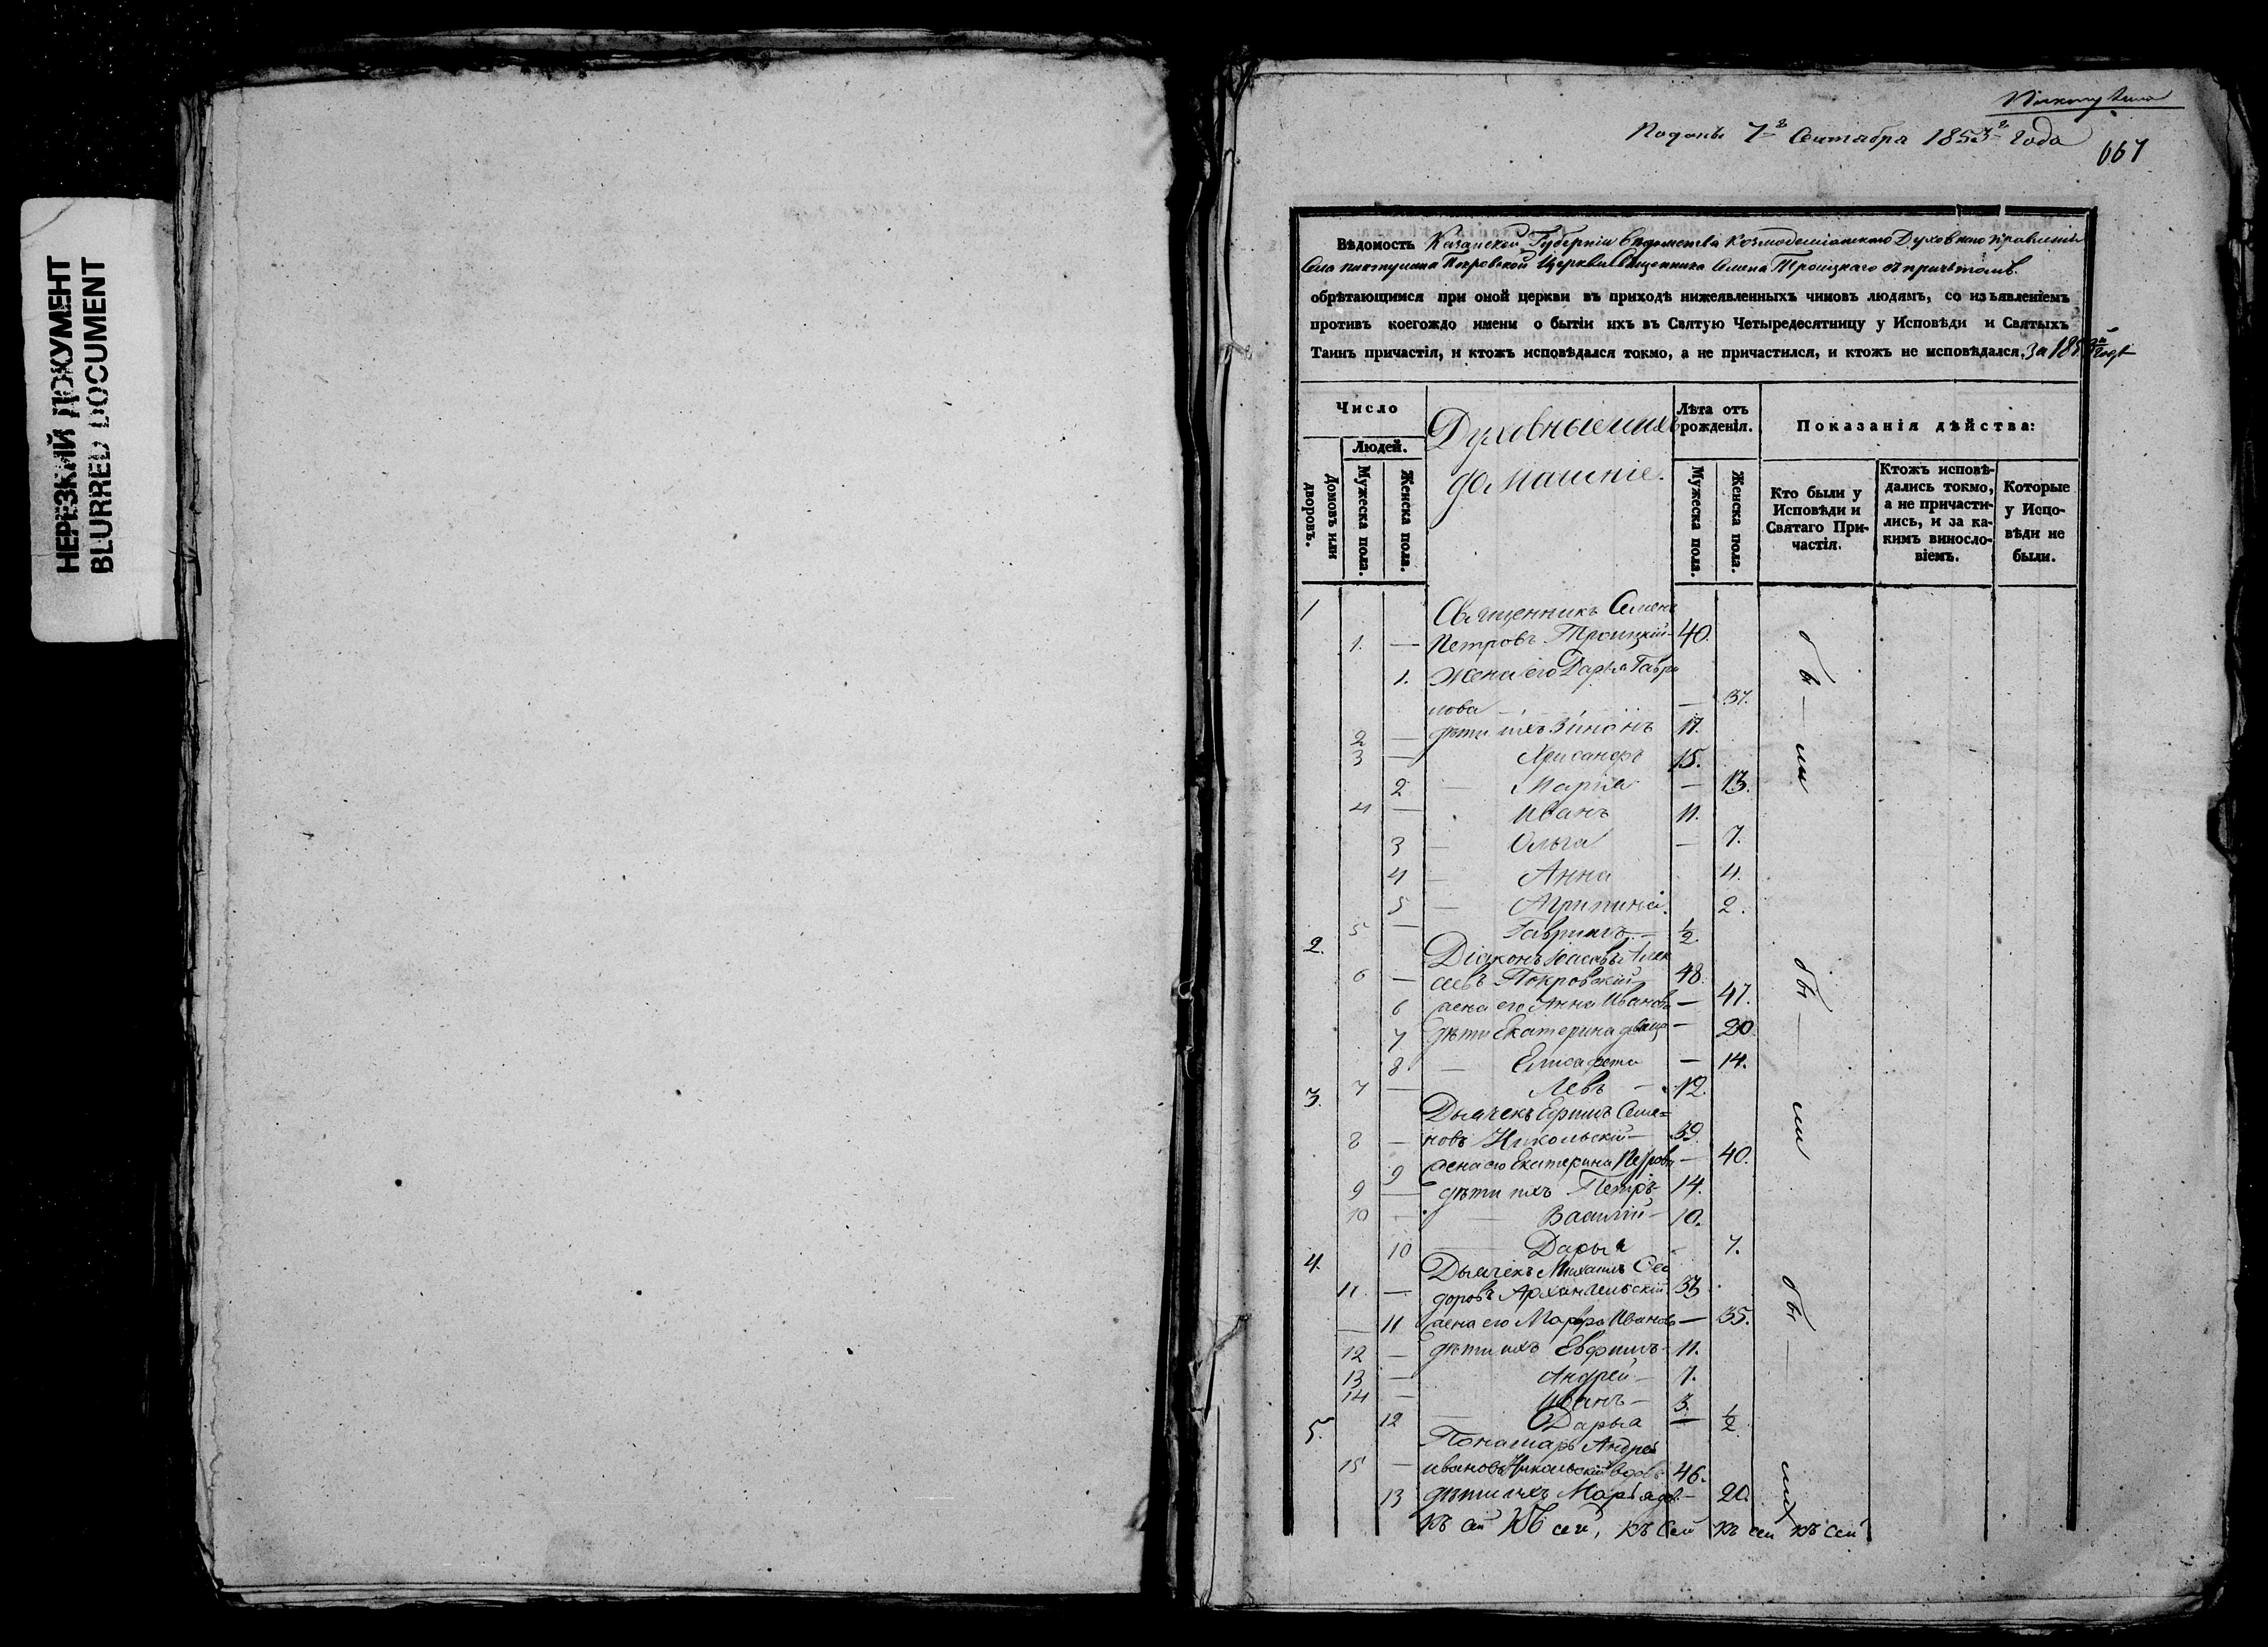 НЕРЕЗКИЙ ДОКУМЕНТ
BLURRED DOCUMENT
Поданъ 7го Сентября 1853го года
667
Вѣдомость Казанской Губерніи вѣдомства Козмодемiанскаго Духовнаго правленiя
Села пиктулина Покровской Церкви священника Семена Троицкаго съ причтомъ.
обрѣтающимся при оной церкви въ приходѣ нижеявленныхъ чиновъ людямъ, со изъявленіемъ
противъ коегождо имени о бытіи ихъ въ Святую Четыредесятницу у Исповѣди и Святыхъ
Таинъ причастія, и ктожъ исповѣдался токмо, а не причастился, и ктожъ не исповѣдался. За 1853й годъ
Число
Людей.
Домовъ или дворовъ.
Мужеска пола.
Женска пола.
Духовные и ихъ
домашніе.
Лѣта отъ рожденія.
Мужеска пола.
Женска пола.
Показанія дѣйства:
Кто были у Исповѣди и Святаго Причастія.
Ктожъ исповѣдались токмо, а не причастились, и за какимъ винословіемъ.
Которые у Исповѣди не были.
1 Священникъ Семенъ
1. — Петровъ Троицкій — 40.
1. Жена его Дарья Гаври
лова — 37.
2 — дѣти ихъ Зинонъ 17.
3 — Хрисанфъ 15.
2 — Марія — 13.
4 — Иванъ 11.
3 — Ольга — 7.
4 — Анна 4.
5 — Агрипина. 2.
5 — Гавриилъ — 1/2
2. Діаконъ Алек
6 — сѣевъ Покровскій 48.
6 жена его Анна Иванова — 47.
7 дѣти Екатерина дѣвица — 20
8 — Елисавета — 14.
7 — Левъ — 12.
3. Дьячекъ Ефимъ Семе=
8 — новъ Никольскій — 39.
9 жена его Екатерина Петрова — 40.
9 — дѣти ихъ Петръ 14.
10 — Василій — 10.
10 — Дарья 7.
4. Дьячекъ Михаилъ Ѳео
11 — доровъ Архангельскій 33
— 11 жена его Марѳа Иванова — 35.
12 — дѣти ихъ Евфимъ 11.
13 — Андрей — 7.
14 — Иванъ — 3.
12 — Дарья — 1/2
5. Пономарь Андрей
15 — Ивановъ Никольскій вдовъ 46.
13 дѣти ихъ Марья дѣв. — 20.
бы — ли
бы — ли
бы — ли